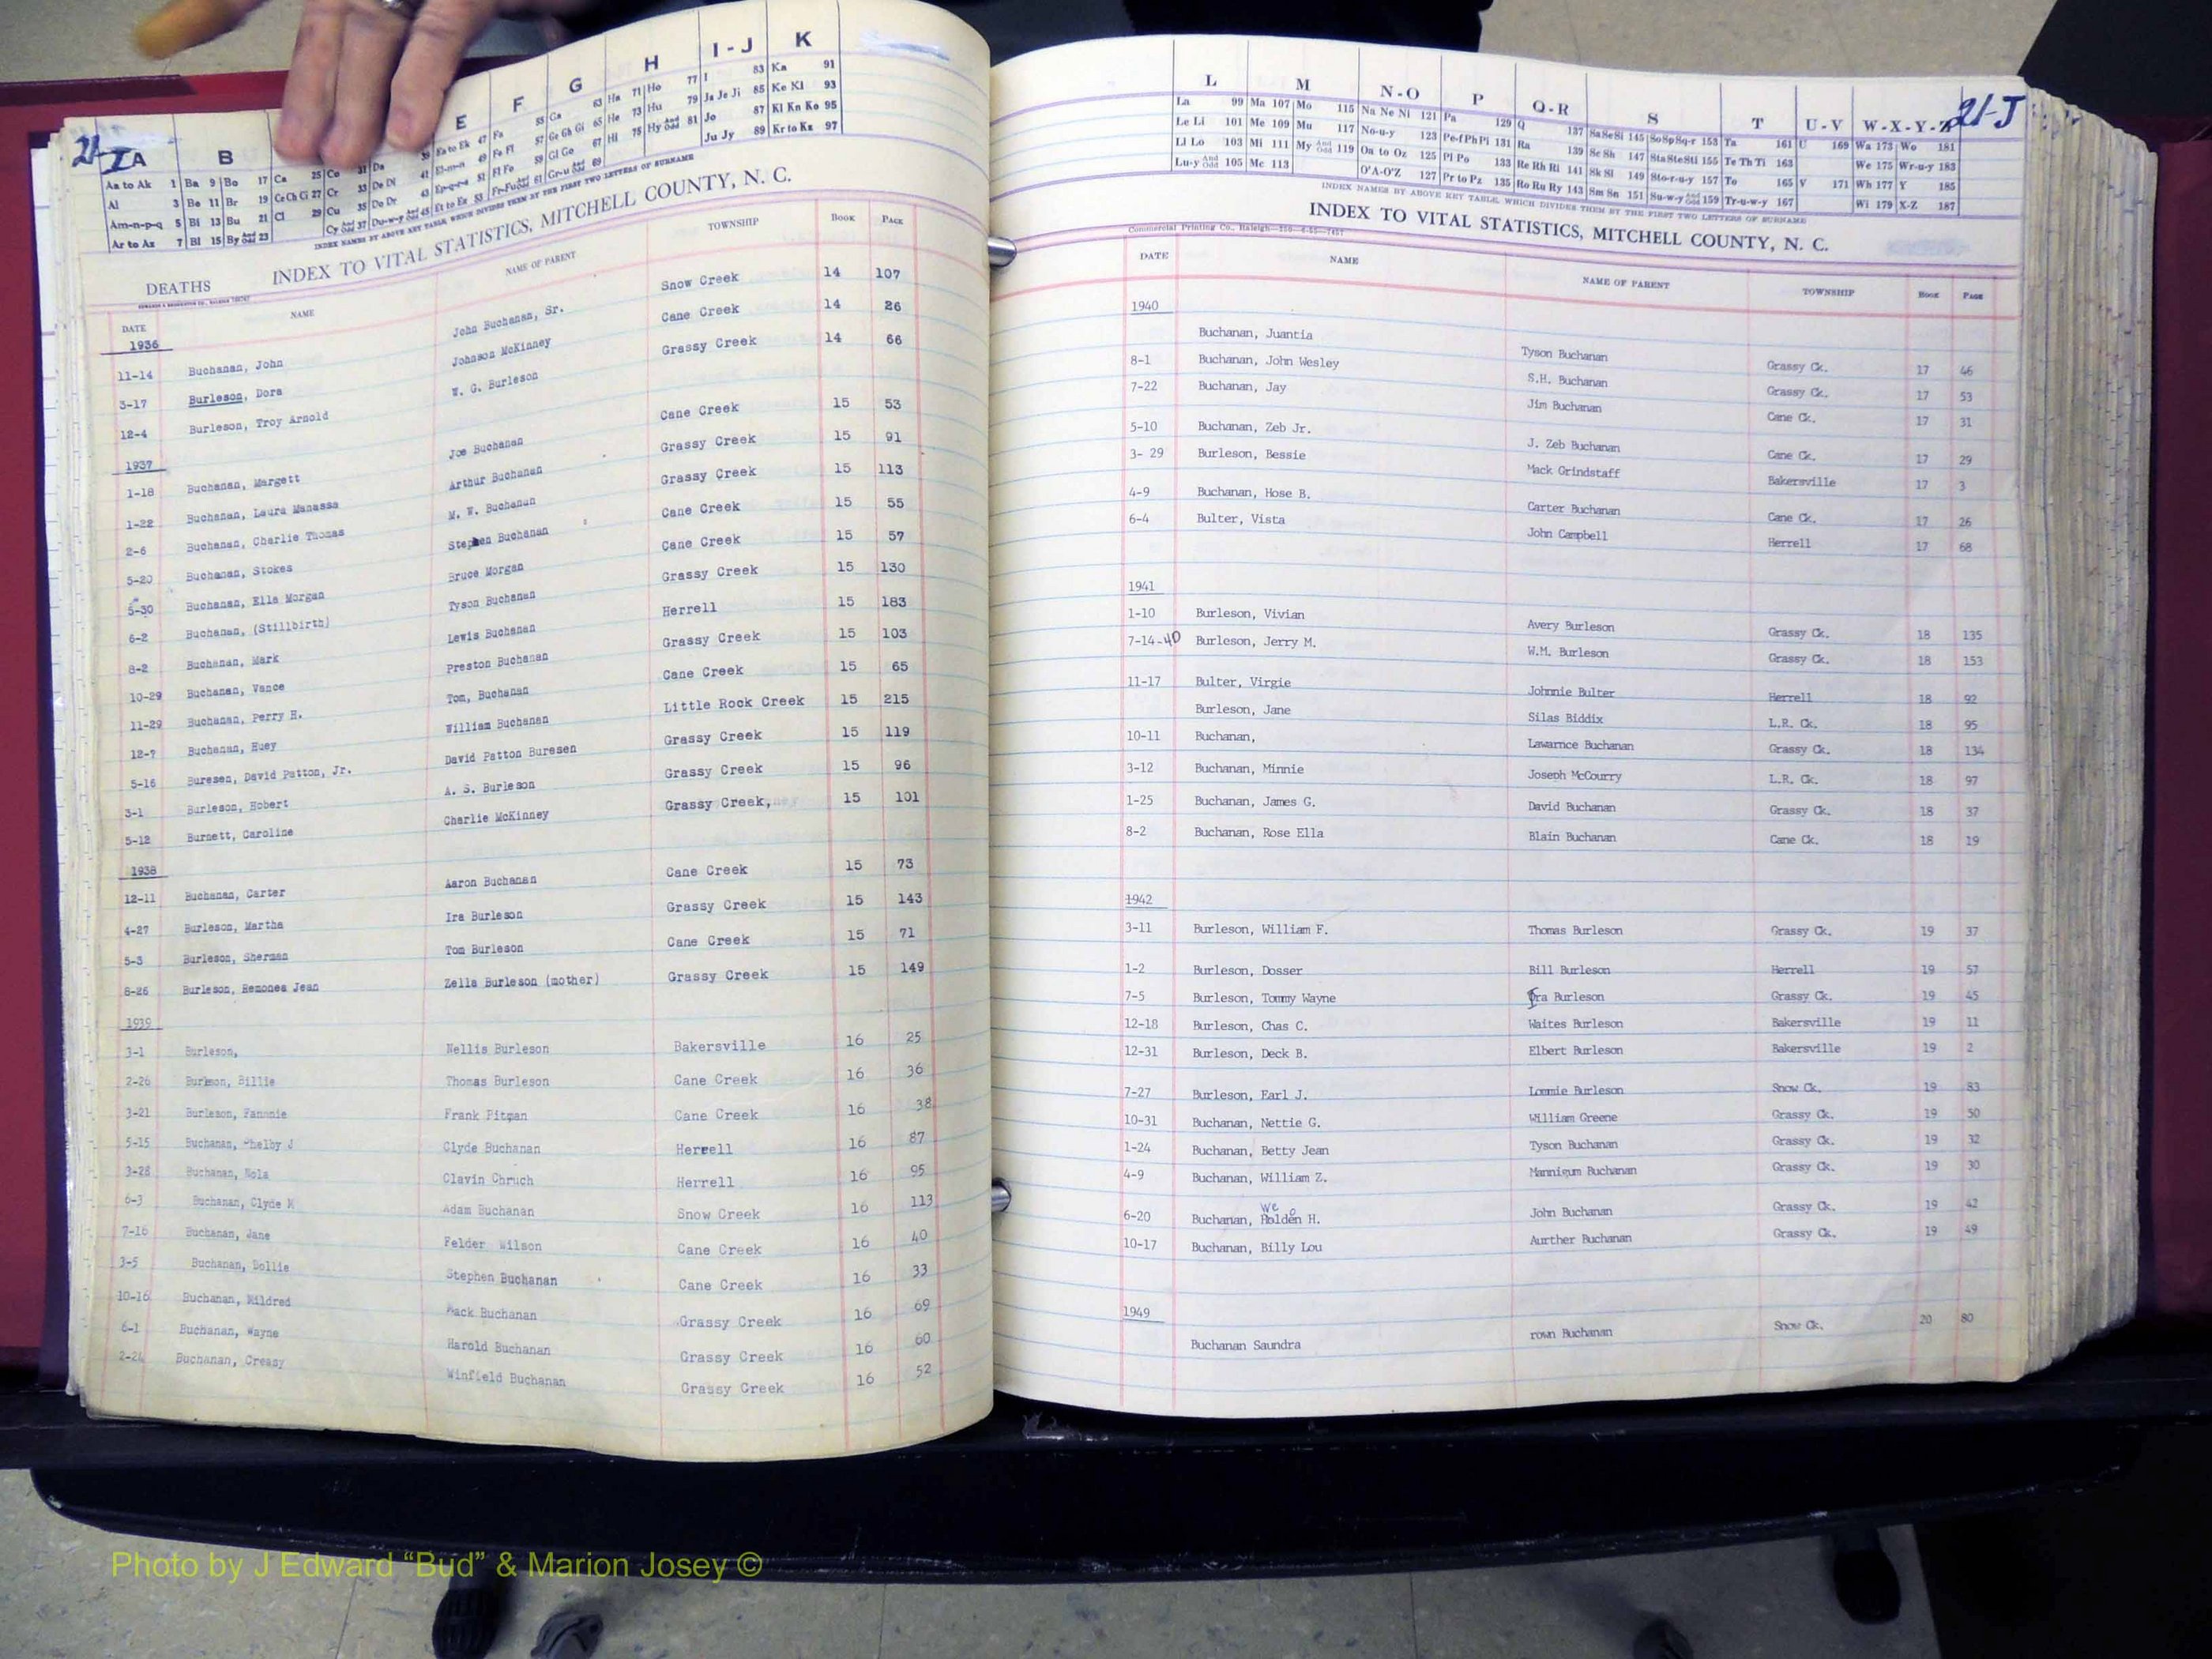 21-I
A B E F G H I-J K
Aa to Ak 1 Ba 9 Bo 17 Ca 25 Co 31 Da 39 Ea to Ek 47 Fa 55 Ga 63 Ha 71 Ho 77 I 83 Ka 91
Al 3 Be 11 Br 19 Ce Ch Ci 27 Cr 33 De Di 41 El-m-n 49 Fe Fi 57 Ge Gh Gi 65 He 73 Hu 79 Ja Je Ji 85 Ke Ki 93
Am-n-p-q 5 Bi 13 Bu 21 Cl 29 Cu 35 Do Dr 43 Ep-q-r-s 51 Fl Fo 59 Gl Go 67 Hi 75 Hy And Odd 81 Jo 87 Kl Kn Ko 95
Ar to Az 7 Bl 15 By And Odd 23 Cy And Odd 37 Du-w-y And Odd 45 Et to Ez 53 Fr-Fu And Odd 61 Gr-u And Odd 69 Ju Jy 89 Kr to Kz 97
INDEX NAMES BY ABOVE KEY TABLE, WHICH DIVIDES THEM BY THE FIRST TWO LETTERS OF SURNAME
DEATHS INDEX TO VITAL STATISTICS, MITCHELL COUNTY, N. C.
DATE NAME NAME OF PARENT TOWNSHIP BOOK PAGE
1936
11-14 Buchanan, John John Buchanan, Sr. Snow Creek 14 107
3-17 Burleson, Dora Johnson McKinney Cane Creek 14 26
12-4 Burleson, Troy Arnold W. G. Burleson Grassy Creek 14 66
1937
1-18 Buchanan, Margett Joe Buchanan Cane Creek 15 53
1-22 Buchanan, Laura Manassa Arthur Buchanan Grassy Creek 15 91
2-6 Buchanan, Charlie Thomas M. W. Buchanun Grassy Creek 15 113
5-20 Buchanan, Stokes Stephen Buchanan Cane Creek 15 55
5-30 Buchanan, Ella Morgan Bruce Morgan Cane Creek 15 57
6-2 Buchanan, (Stillbirth) Tyson Buchanan Grassy Creek 15 130
8-2 Buchanan, Mark Lewis Buchanan Herrell 15 183
10-29 Buchanan, Vance Preston Buchanan Grassy Creek 15 103
11-29 Buchanan, Perry H. Tom, Buchanan Cane Creek 15 65
12-7 Buchanan, Huey William Buchanan Little Rock Creek 15 215
5-16 Buresen, David Patton, Jr. David Patton Buresen Grassy Creek 15 119
3-1 Burleson, Hobert A. S. Burleson Grassy Creek 15 96
5-12 Burnett, Caroline Charlie McKinney Grassy Creek, 15 101
1938
12-11 Buchanan, Carter Aaron Buchanan Cane Creek 15 73
4-27 Burleson, Martha Ira Burleson Grassy Creek 15 143
5-3 Burleson, Sherman Tom Burleson Cane Creek 15 71
8-26 Burleson, Remonea Jean Zella Burleson (mother) Grassy Creek 15 149
1939
3-1 Burleson, Nellis Burleson Bakersville 16 25
2-26 Burleson, Billie Thomas Burleson Cane Creek 16 36
3-21 Burleson, Fannnie Frank Pitman Cane Creek 16 38
5-15 Buchanan, Shelby J Clyde Buchanan Herrell 16 87
3-28 Buchanan, Nola Clavin Chruch Herrell 16 95
6-3 Buchanan, Clyde M Adam Buchanan Snow Creek 16 113
7-16 Buchanan, Jane Felder Wilson Cane Creek 16 40
3-5 Buchanan, Dollie Stephen Buchanan Cane Creek 16 33
10-16 Buchanan, Mildred Mack Buchanan Grassy Creek 16 69
6-1 Buchanan, Wayne Harold Buchanan Grassy Creek 16 60
2-24 Buchanan, Creasy Winfield Buchanan Grassy Creek 16 52
21-J
L M N-O P Q-R S T U-V W-X-Y-Z
La 99 Ma 107 Mo 115 Na Ne Ni 121 Pa 129 Q 137 Sa Se Si 145 So Sp Sq-r 153 Ta 161 U 169 Wa 173 Wo 181
Le Li 101 Me 109 Mu 117 No-u-y 123 Pe-f Ph Pi 131 Ra 139 Sc Sh 147 Sta Ste Sti 155 Te Th Ti 163 We 175 Wr-u-y 183
Ll Lo 103 Mi 111 My And Odd 119 Oa to Oz 125 Pl Po 133 Re Rh Ri 141 Sk Sl 149 Sto-r-u-y 157 To 165 V 171 Wh 177 Y 185
Lu-y And Odd 105 Mc 113 O'A-O'Z 127 Pr to Pz 135 Ro Ru Ry 143 Sm Sn 151 Su-w-y And Odd 159 Tr-u-w-y 167 Wi 179 X-Z 187
INDEX NAMES BY ABOVE KEY TABLE, WHICH DIVIDES THEM BY THE FIRST TWO LETTERS OF SURNAME
INDEX TO VITAL STATISTICS, MITCHELL COUNTY, N. C.
Commercial Printing Co., Raleigh
DATE NAME NAME OF PARENT TOWNSHIP BOOK PAGE
1940
Buchanan, Juantia Tyson Buchanan Grassy Ck. 17 46
8-1 Buchanan, John Wesley S.H. Buchanan Grassy Ck. 17 53
7-22 Buchanan, Jay Jim Buchanan Cane Ck. 17 31
5-10 Buchanan, Zeb Jr. J. Zeb Buchanan Cane Ck. 17 29
3- 29 Burleson, Bessie Mack Grindstaff Bakersville 17 3
4-9 Buchanan, Hose B. Carter Buchanan Cane Ck. 17 26
6-4 Bulter, Vista John Campbell Herrell 17 68
1941
1-10 Burleson, Vivian Avery Burleson Grassy Ck. 18 135
7-14-40 Burleson, Jerry M. W.M. Burleson Grassy Ck. 18 153
11-17 Bulter, Virgie Johnnie Bulter Herrell 18 92
Burleson, Jane Silas Biddix L.R. Ck. 18 95
10-11 Buchanan, Lawarnce Buchanan Grassy Ck. 18 134
3-12 Buchanan, Minnie Joseph McCourry L.R. Ck. 18 97
1-25 Buchanan, James G. David Buchanan Grassy Ck. 18 37
8-2 Buchanan, Rose Ella Blain Buchanan Cane Ck. 18 19
1942
3-11 Burleson, William F. Thomas Burleson Grassy Ck. 19 37
1-2 Burleson, Dosser Bill Burleson Herrell 19 57
7-5 Burleson, Tommy Wayne Ira Burleson Grassy Ck. 19 45
12-18 Burleson, Chas C. Waites Burleson Bakersville 19 11
12-31 Burleson, Deck B. Elbert Burleson Bakersville 19 2
7-27 Burleson, Earl J. Lommie Burleson Snow Ck. 19 83
10-31 Buchanan, Nettie G. William Greene Grassy Ck. 19 50
1-24 Buchanan, Betty Jean Tyson Buchanan Grassy Ck. 19 32
4-9 Buchanan, William Z. Mannigum Buchanan Grassy Ck. 19 30
We o
6-20 Buchanan, Holden H. John Buchanan Grassy Ck. 19 42
10-17 Buchanan, Billy Lou Aurther Buchanan Grassy Ck. 19 49
1949
Buchanan Saundra rown Buchanan Snow Ck. 20 80
Photo by J Edward “Bud” & Marion Josey ©